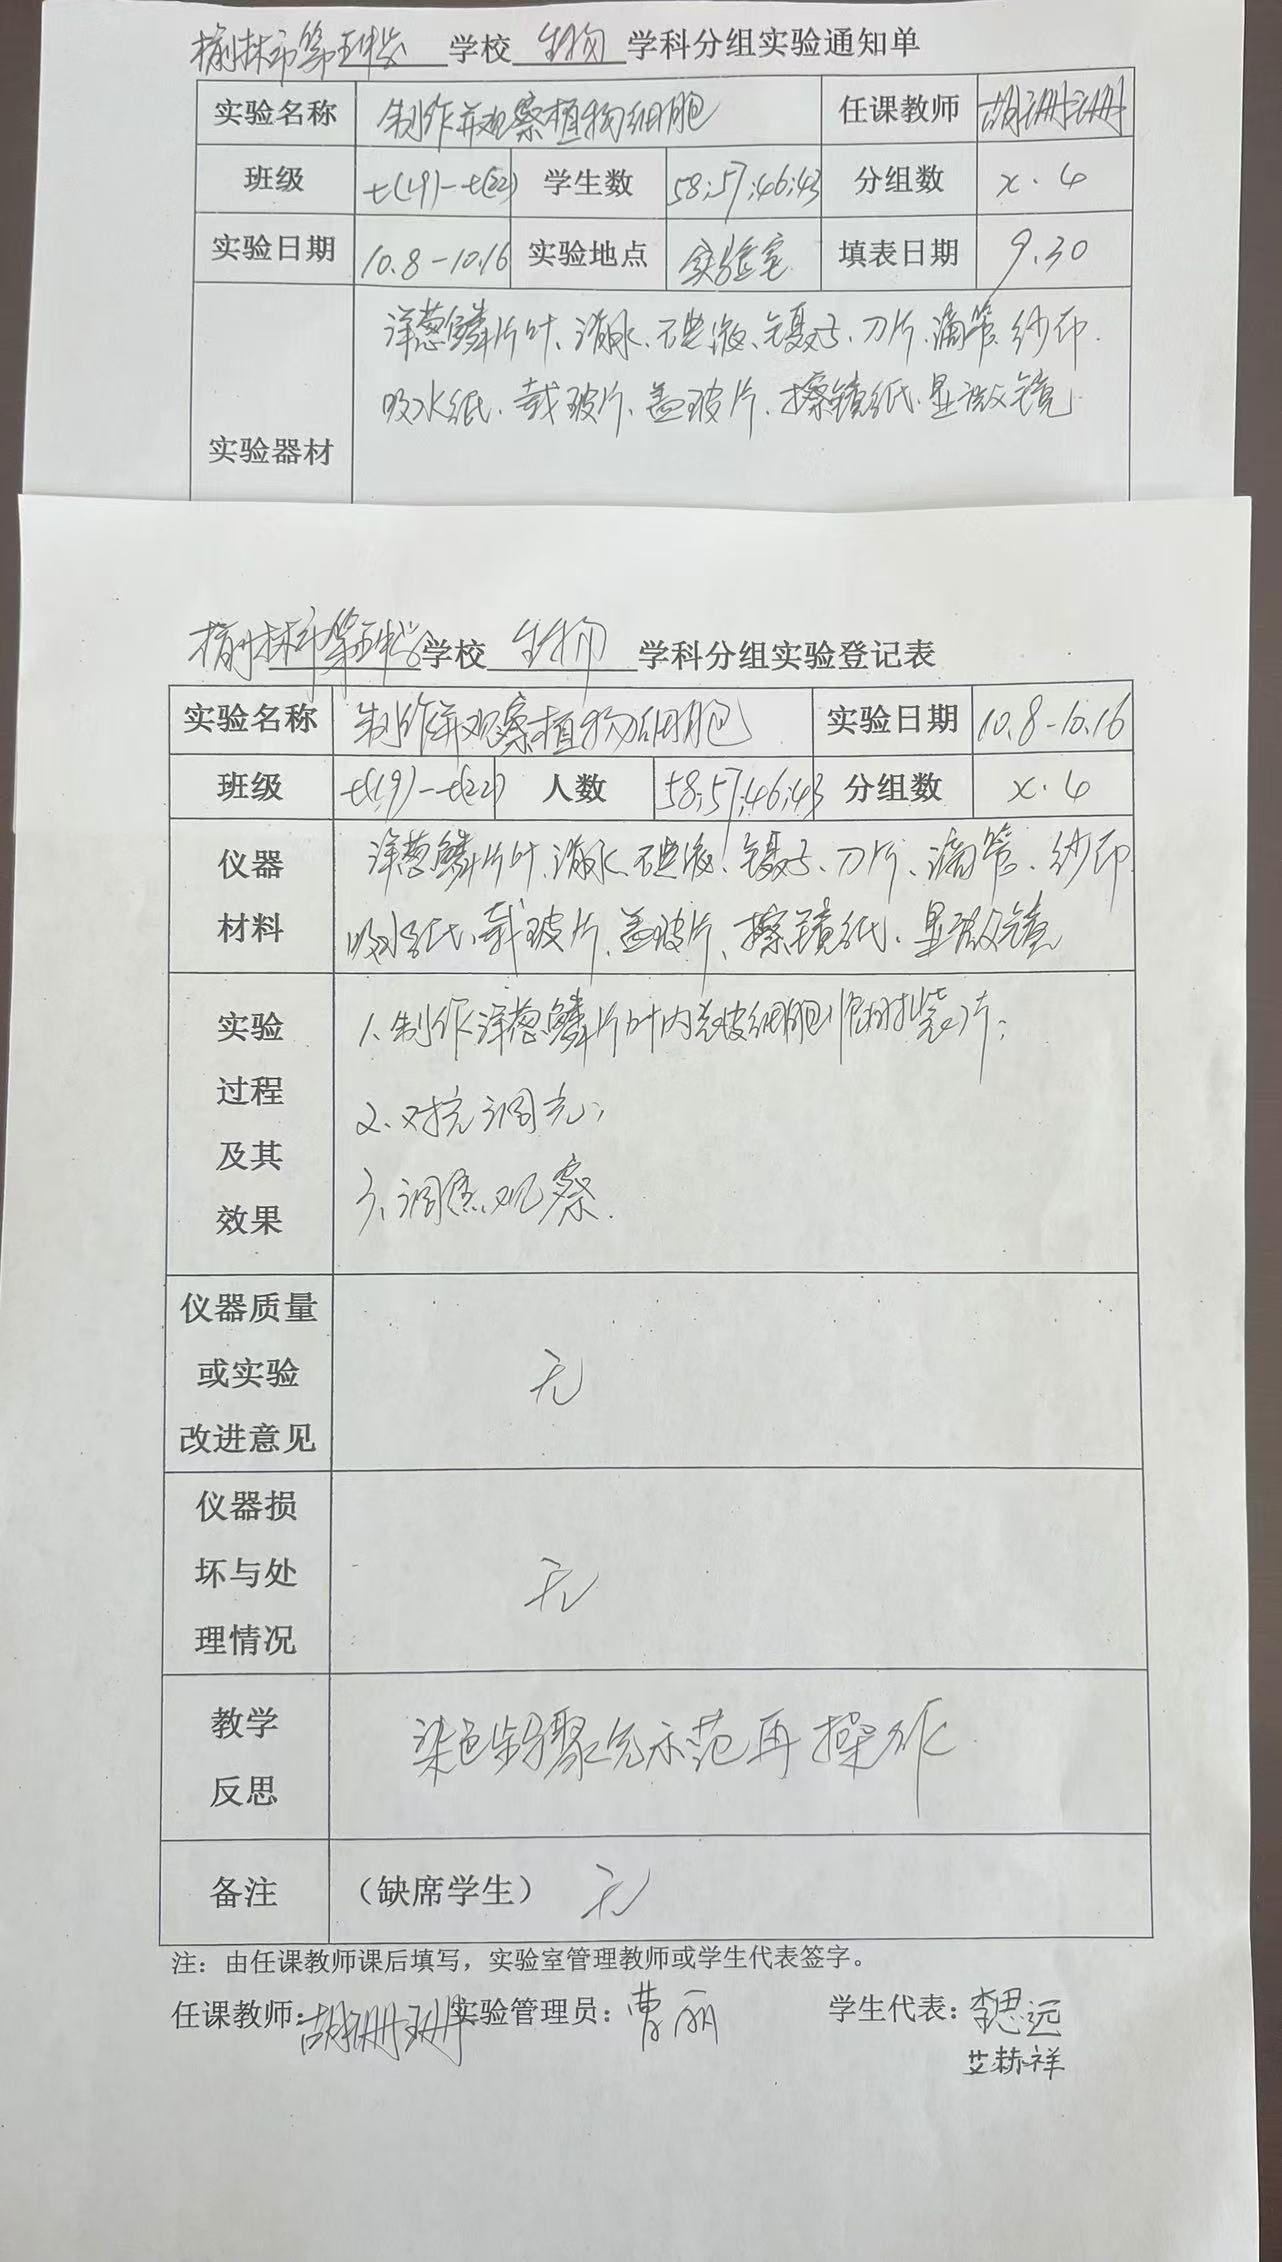 榆林市第五中学 学校 生物 学科分组实验通知单
实验名称 制作并观察植物细胞 任课教师 胡珊珊
班级 七(19)-七(22) 学生数 58;57;46;43 分组数 x·4
实验日期 10.8-10.16 实验地点 实验室 填表日期 9.30
洋葱鳞片叶、清水、碘液、镊子、刀片、滴管、纱布、
吸水纸、载玻片、盖玻片、擦镜纸、显微镜
实验器材
榆林市第五中学 学校 生物 学科分组实验登记表
实验名称 制作并观察植物细胞 实验日期 10.8-10.16
班级 七(19)-七(22) 人数 58;57;46;43 分组数 x·4
仪器 洋葱鳞片叶、清水、碘液、镊子、刀片、滴管、纱布
材料 吸水纸、载玻片、盖玻片、擦镜纸、显微镜
实验 1.制作洋葱鳞片叶内表皮细胞临时装片;
过程 2.对光调光;
及其 3.调焦观察.
效果
仪器质量
或实验 无
改进意见
仪器损
坏与处 无
理情况
教学 染色步骤先示范再操作
反思
备注 (缺席学生) 无
注：由任课教师课后填写，实验室管理教师或学生代表签字。
任课教师：胡珊珊 实验管理员：曹丽 学生代表：李思远
艾赫祥